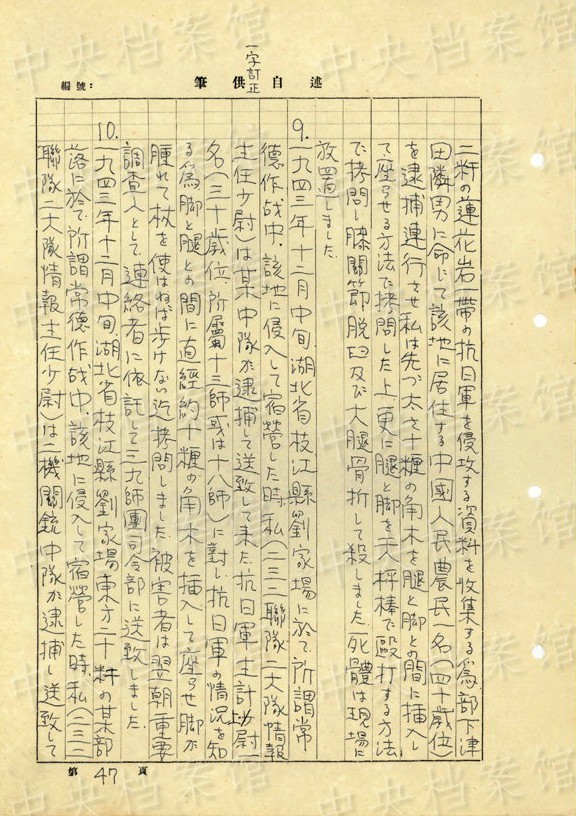 一字訂正
編號：
筆供自述
二粁の蓮花岩一帯の抗日軍を侵攻する資料を收集する為部下津
田隣男に命じて該地に居住する中國人民農民一名(四十歳位)
を逮捕連行させ私は先づ太さ十糎の角木を腿と脚との間に挿入し
て座らせる方法で拷問した上更に腿と脚を天秤棒で毆打する方法
で拷問し膝關節脱臼及び大腿骨折して殺しました.死體は現場に
放置しました.
9.一九四三年十二月中旬.湖北省枝江縣劉家場に於て所謂常
德作战中.該地に侵入して宿營した時.私(二三二聯隊二大隊情報
主任少尉)は某中隊が逮捕して送致して来た抗日軍主計少尉一
名(三十歳位.所屬十三師或は十八師)に對し抗日軍の情況を知
る為脚と腿との間に直經約十糎の角木を挿入して座らせ脚が
腫れて杖を使はねば步けない迄拷問しました.被害者は翌朝重要
調査人として連絡者に依託して三九師團司令部に送致しました.
10.一九四三年十二月中旬.湖北省枝江縣劉家場東方二十粁の某部
落に於て所謂常德作战中.該地に侵入して宿營した時.私(二三二
聯隊二大隊情報主任少尉)は一機關銃中隊が逮捕し送致して
第47頁
中央档案馆